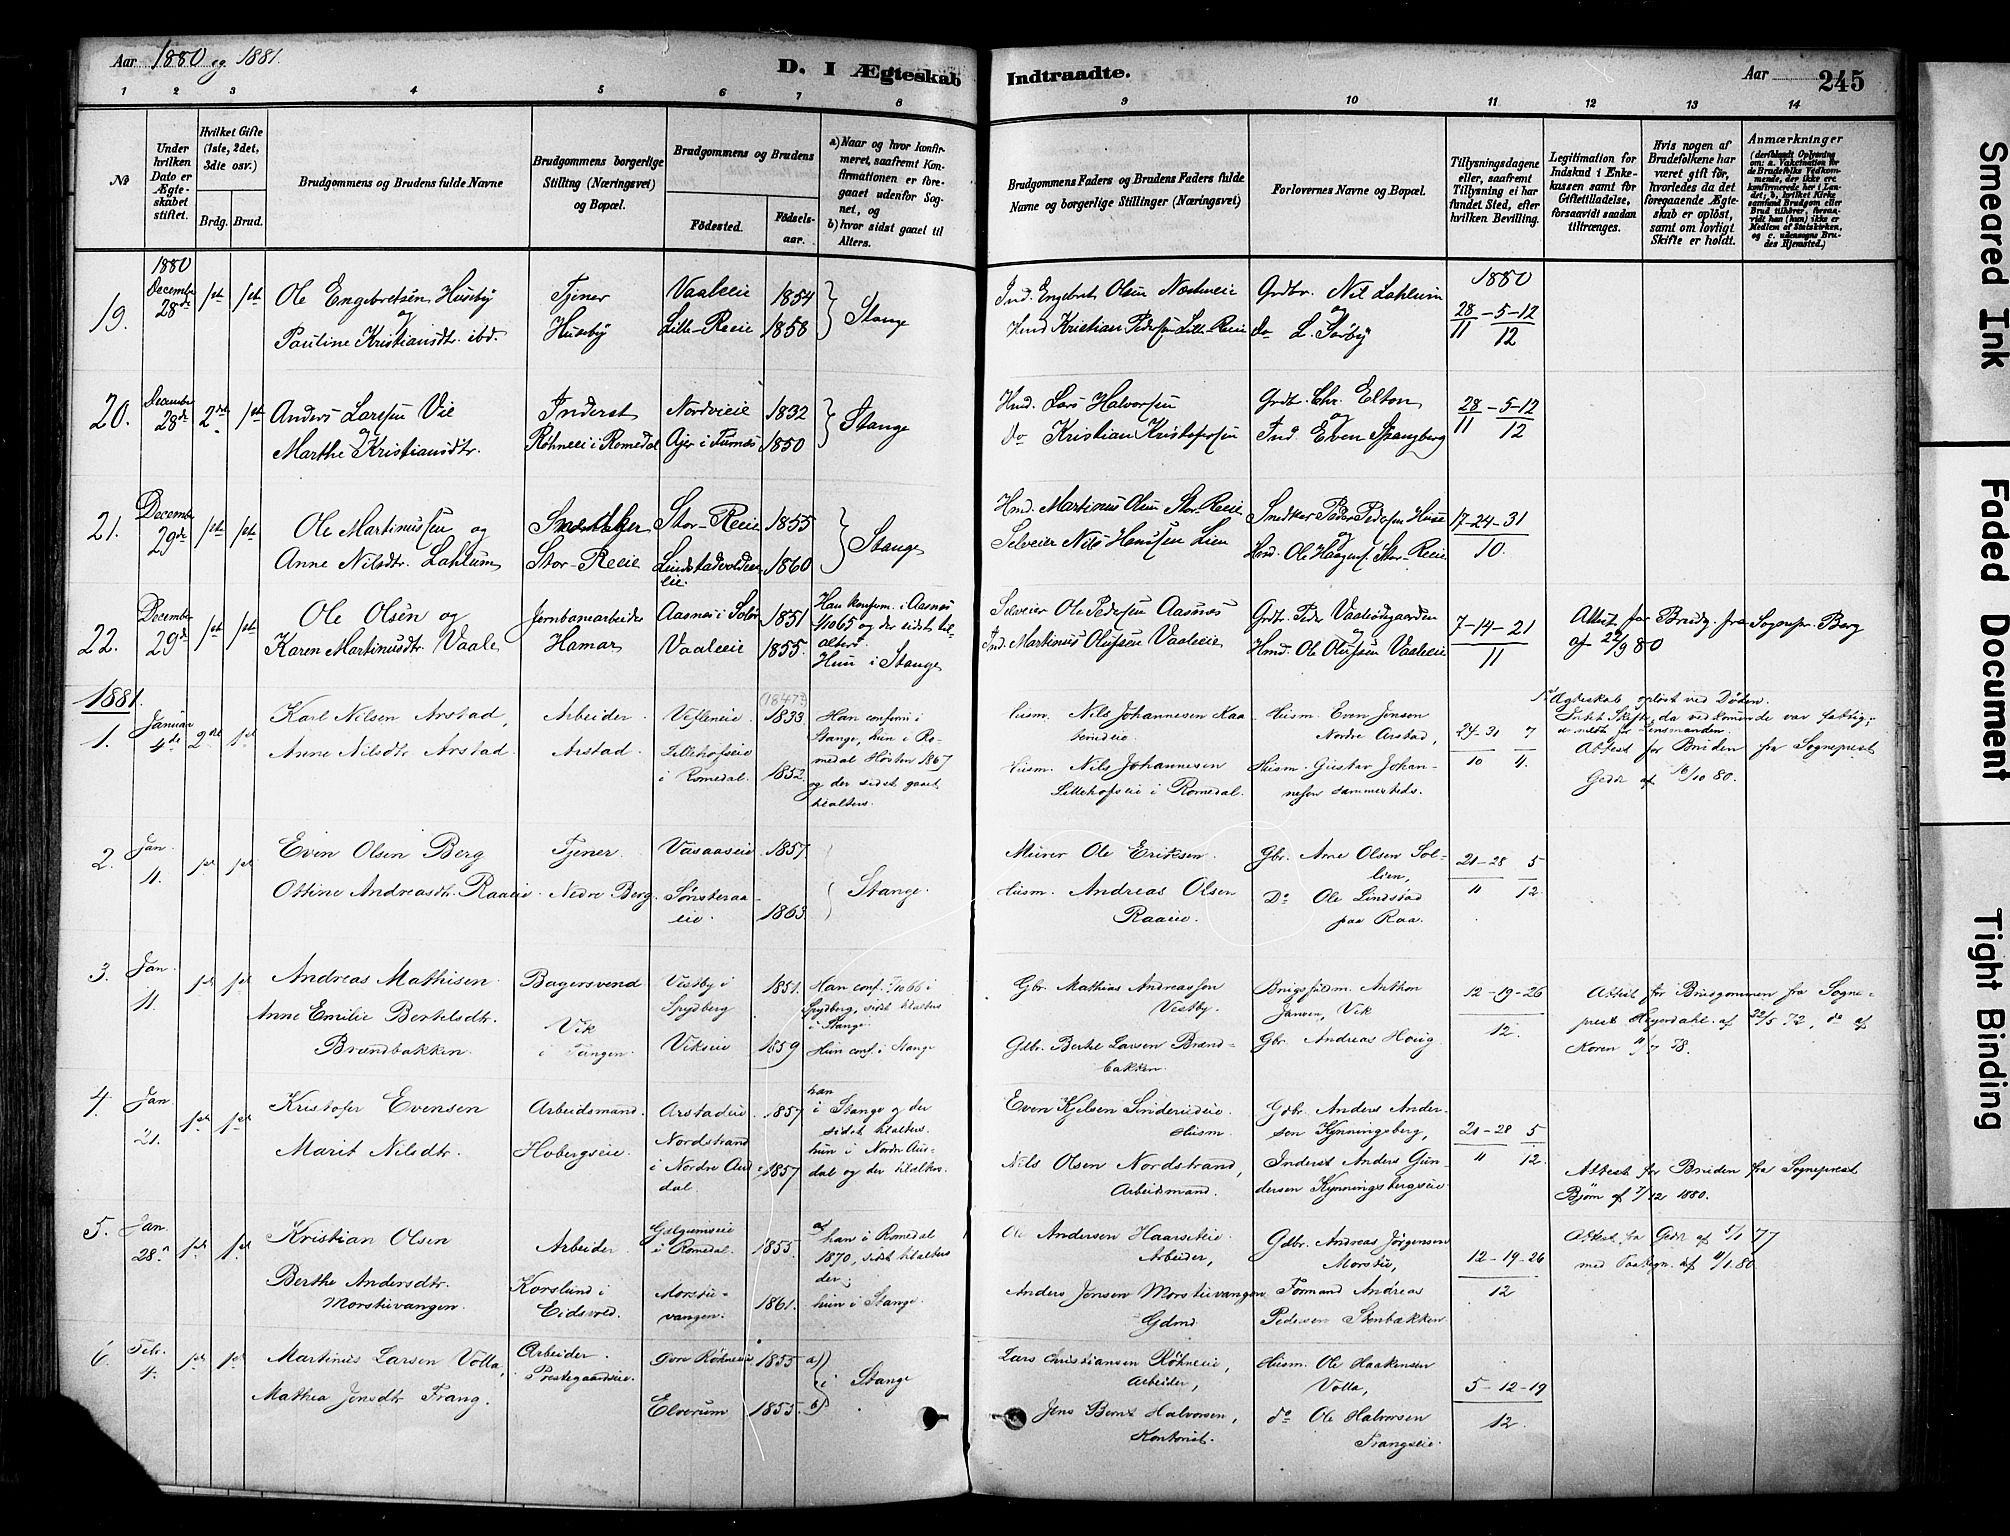 Aar 1880 og 1881.
D. I Ægteskab Indtraadte.
Aar 245
1 2 3 4 5 6 7 8 9 10 11 12 13 14
No
Under hvilken Dato er Ægteskabet stiftet.
Hvilket Gifte (1ste, 2det, 3die osv.)
Brdg. Brud.
Brudgommens og Brudens fulde Navne
Brudgommens borgerlige Stilling (Næringsvei) og Bopæl.
Brudgommens og Brudens
Födested.
Födselsaar.
a) Naar og hvor konfirmeret, saafremt Konfirmationen er foregaaet udenfor Sognet, og
b) hvor sidst gaaet til Alters.
Brudgommens Faders og Brudens Faders fulde Navne og borgerlige Stillinger (Næringsvei)
Forlovernes Navne og Bopæl.
Tillysningsdagene eller, saafremt Tillysning ei har fundet Sted, efter hvilken Bevilling.
Legitimation for Indskud i Enkekassen samt for Giftetilladelse, forsaavidt saadan tiltrænges.
Hvis nogen af Brudefolkene har været gift för, hvorledes da det foregaaende Ægteskab er oplöst, samt om lovligt Skifte er holdt.
Anmærkninger (deriblandt Oplysning om: a. Vakcination for de Brudefolks Vedkommende, der ikke ere konfirmerede her i Landet; b. hvilket Kirkesamfund Brudgom eller Brud tilhörer, forsaavidt han (hun) ikke er Medlem af Statskirken, og c. udensogns Brudes Hjemsted.)
19. 1880 December 28de 1ste 1ste
Ole Engebretsen Huseby
og
Pauline Kristiansdtr. ibd.
Tjener
Huseby
Vaaleeie 1854
Lille-Reeie 1858
Stange
Ind. Engebret Olsen
Hmd Kristian Pedersen Lille-Reeie
Grdbr. Nil Lahlum
og
do L. Sørby
1880
28/11 - 5-12/12
20. December 28de 2det 1ste
Anders Larssen Vie
og
Marthe Kristiansdtr.
Inderst
Röhneie i Romedal
Nordvieie 1832
Ajer i Furnes 1850
Stange
Hmd. Lars Halvorsen
do Kristian Kristofersen
Grdbr. Chr. Elton
og
Ind. Even Spangberg
28/11 - 5-12/12
21. December 29de 1ste 1ste
Ole Martinussen og
Anne Nilsdtr. Lahlum
Snedker
Stor-Reeie
Stor-Reeie 1855
Lindstadvolden eie. 1860
Stange
Hmd. Martinus Olsen Stor-Reeie
Selveier Nils Hanssen Lien
Snedker Peder Pedersen Huse
og
Hmd. Ole Haagens. Stor-Reeie
17-24-31
10.
22. December 29de 1ste 1ste
Ole Olsen og
Karen Martinusdtr. Vaale
Jernbanearbeider
Hamar
Aasnes i Solør 1851
Vaaleeie 1855.
Han konfirm. i Aasnes
og der sidst til
alters.
Hun i Stange
Selveier Ole Pedersen Aasnes
Ind. Martinus Olufsen Vaaleeie
Grdbr. Peder Vaalsødegaarden
og
Hmd. Ole Olufsen Vaaleeie
7-14-21
11
Attest for Brudg. fra Sognepr. Berg
af 22/9 80
1881.
1. Januar 4de 2det 1ste
Karl Nilsen Arstad,
Anne Nilsdtr Arstad
Arbeider.
Arstad.
(1847?)
1833
Lillehofseie
i Romedal. 1852.
Han confirm. i
Stange, hun i Romedal
Høsten 1867
og der sidst gaaet
tilalters.
Husm. Nils Johannesen
Husm. Nils Johannesen
Lillehofseie i Romedal.
Husm. Even Jensen
Nordre Arstad,
Husm. Gustav Johannesen
sammesteds.
24-31/10 7/11.
1° Ægteskab opløst ved Døden.
Intet Skifte, da vedkommende var fattig,
Lensmanden.
Attest for Bruden fra Sogneprest
Gedr af 16/10 80.
2. Jan. 4. 1ste 1ste
Even Olsen Berg
Ottine Andreasdtr. Raaeie.
Tjener.
Nedre Berg.
Vasaaseie 1857.
Sønsteraaeie. 1863.
Stange.
Murer Ole Eriksen.
Husm. Andreas Olsen
Raaeie.
Gbr. Arne Olsen Sollien,
Do Ole Lindstad
paa Raa.
21-28/11 5/12.
3. Jan. 11. 1ste 1ste
Andreas Mathisen.
Anne Emilie Bertelsdtr.
Brændbakken.
Bagersvend
Vik
i Tangen.
Vestby i
Spydberg 1851.
Vikseie 1859
Han conf. i
Spydberg, sidst tilalters
i Stange.
Hun conf. i Stange
Gbr. Mathias Andreassen
Vestby.
Gdbr. Bertel Larsen Brændbakken.
Anthon
Jansen, Vik
Gbr. Andreas Houg.
12-19-26
12.
Attest for Brudgommen fra Sogneprest
Heyerdahl. af 22/5 72, do af
Koren 11/7 78.
4. Jan 21. 1ste 1ste
Kristofer Evensen
Marit Nilsdtr.
Arbeidsmand.
Hobergseie.
Arstadeie 1857
Nordstrand
i Nordre Audal. 1857
han
i Stange og der
sidst tilalters
hun i Nordre Ausdal
og der tilalters.
Even Kjelsen
Husm.
Nils Olsen Nordstrand,
Arbeidsmand.
Gdbr. Anders Andersen
Kynningsberg,
Inderst Anders Gundersen
Kynningsbergseie
21-28/11 5/12.
Attest for Bruden fra Sogneprest
Bjørn af 7/12 1880.
5. Jan. 28de 1ste 1ste
Kristian Olsen
Berthe Andersdtr.
Morstuvangen.
Arbeider.
Korslund i
Eidsvold.
i Romedal. 1855.
Morstuvangen. 1861.
a) han i Romedal
1870, sidst tilalters
der;
hun i Stange.
Ole Andersen Haarseteie
Arbeider,
Anders Jensen Morstuvangen
Gdmd
Gdbr. Andreas Jørgensen
Morstu,
Formand Andreas
Pedersen Stenbækken
12-19-26
12
Attest fra Gedr af 5/1 77
med Paategn. af 11/1 80.
6. Febr. 4. 1ste 1ste
Martinus Larsen Volla,
Mathea Jensdtr Frang.
Arbeider.
Prestegaardseie.
Øvre Röhneie 1855
Elverum 1855.
a)
i Stange
b)
Lars Christiansen Röhneie,
Arbeider,
Jens Bernt Halvorsen,
Kontorist.
Husm. Ole Haakensen
Volla,
do Ole Halvorsen
Frangseie.
5-12-19
12.
Smeared Ink
Faded Document
Tight Binding